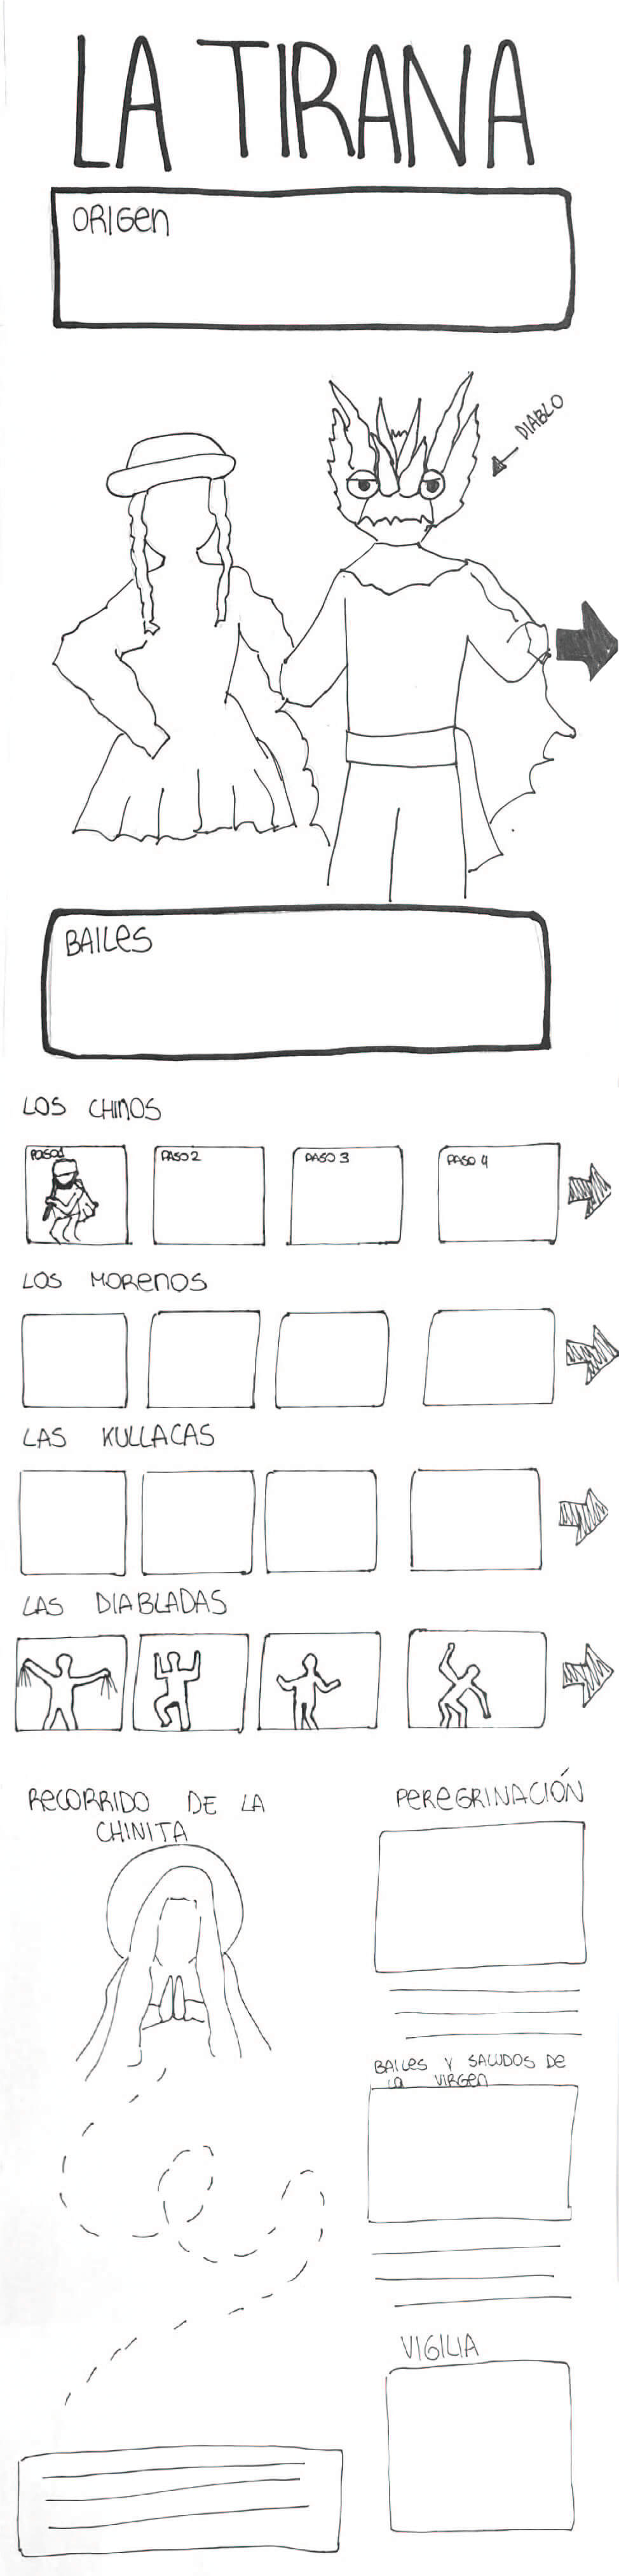 LA TIRANA
ORIGEN
DIABLO
BAILES
LOS CHINOS
PASO 1
PASO 2
PASO 3
PASO 4
LOS MORENOS
LAS KULLACAS
LAS DIABLADAS
RECORRIDO DE LA
CHINITA
PEREGRINACIÓN
BAILES Y SALUDOS DE
LA VIRGEN
VIGILIA